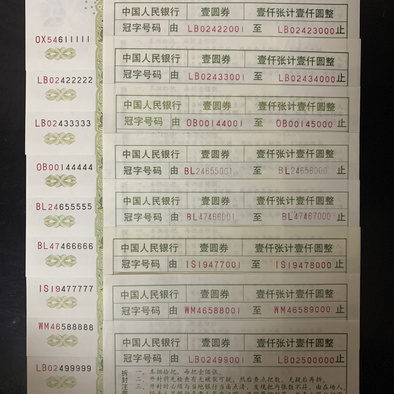 中国人民银行 壹圆券 壹仟张计壹仟圆整
冠字号码 由 LB02422001 至 LB02423000 止
OX54611111
中国人民银行 壹圆券 壹仟张计壹仟圆整
冠字号码 由 LB02433001 至 LB02434000 止
LB02422222
中国人民银行 壹圆券 壹仟张计壹仟圆整
冠字号码 由 OB00144001 至 OB00145000 止
LB02433333
中国人民银行 壹圆券 壹仟张计壹仟圆整
冠字号码 由 BL24655001 至 BL24656000 止
OB00144444
中国人民银行 壹圆券 壹仟张计壹仟圆整
冠字号码 由 BL47466001 至 BL47467000 止
BL24655555
中国人民银行 壹圆券 壹仟张计壹仟圆整
BL47466666
冠字号码 由 IS19477001 至 IS19478000 止
IS19477777
中国人民银行 壹圆券 壹仟张计壹仟圆整
冠字号码 由 WM46588001 至 WM46589000 止
WM46588888
中国人民银行 壹圆券 壹仟张计壹仟圆整
冠字号码 由 LB02499001 至 LB02500000 止
LB02499999